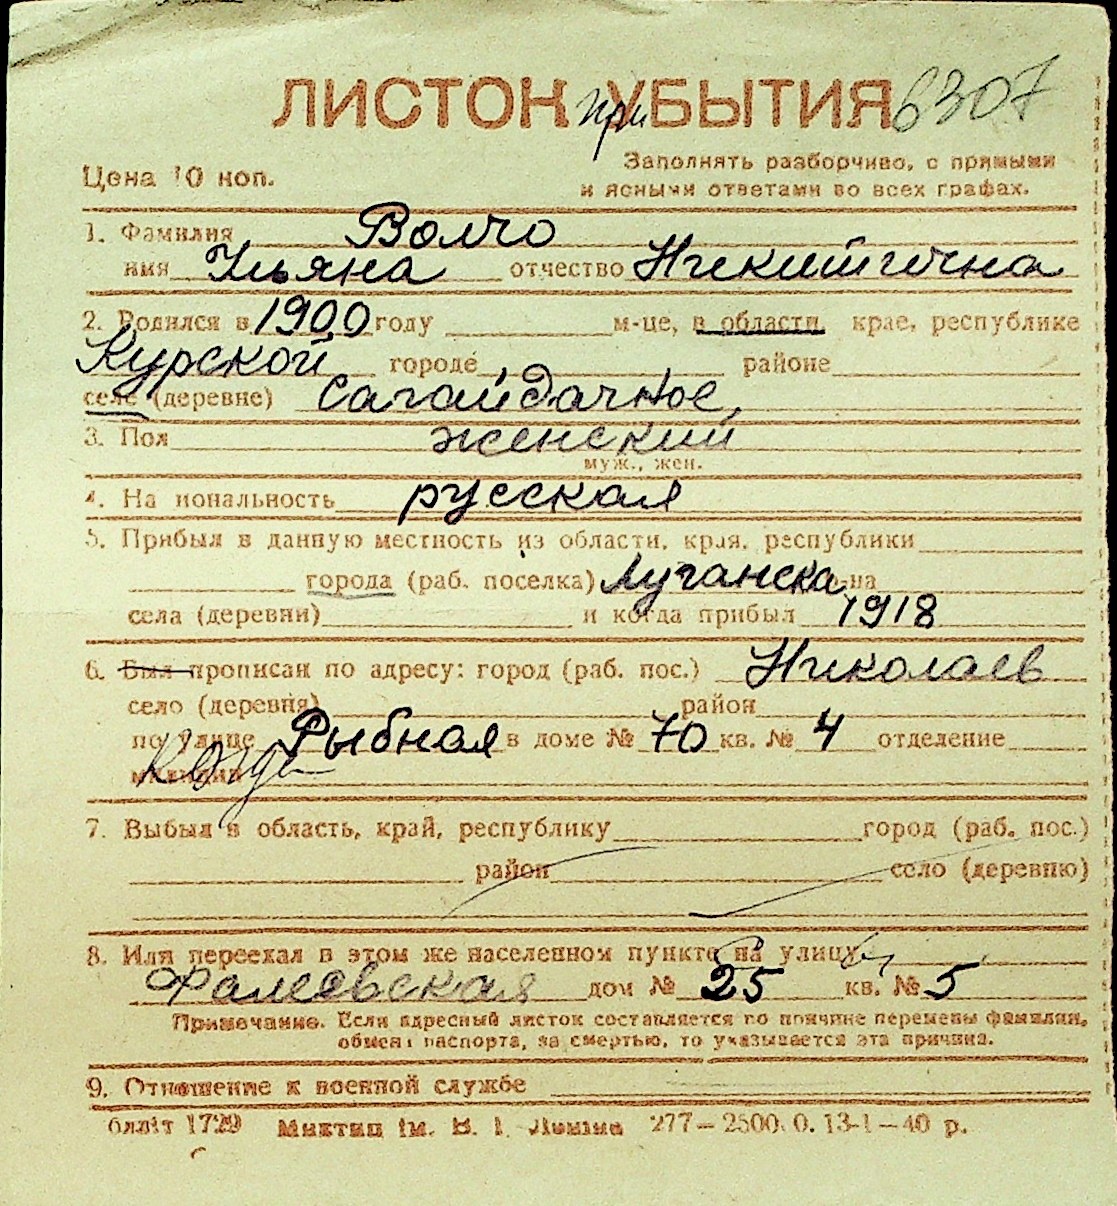 ЛИСТОК при УБЫТИЯ 6307
Заполнять разборчиво, с прямыми
Цена 10 коп. и ясными ответами во всех графах.
1. Фамилия Волчо
имя Ульяна отчество Никитична
2. Родился в 1900 году м-це, в области, крае, республике
Курской городе районе
селе (деревне) Сагайдачное,
3. Пол женский
муж., жен.
4. На иональность русская
5. Прибыл в данную местность из области, края, республики
города (раб. поселка) Луганска р-на
села (деревни) и когда прибыл 1918
6. Был прописан по адресу: город (раб. пос.) Николаев
село (деревня) район
по улице Рыбная в доме № 70 кв. № 4 отделение
милиции Когда
7. Выбыл в область, край, республику город (раб. пос.)
район село (деревню)
8. Или переехал в этом же населенном пункте на улицу
Фалеевская дом № 25 кв. № 5
Примечание. Если адресный листок составляется по причине перемены фамилии,
обмена паспорта, за смертью, то указывается эта причина.
9. Отношение к военной службе
1729 ім. В. І. Леніна 277—2500. 0. 13-1—40 р.